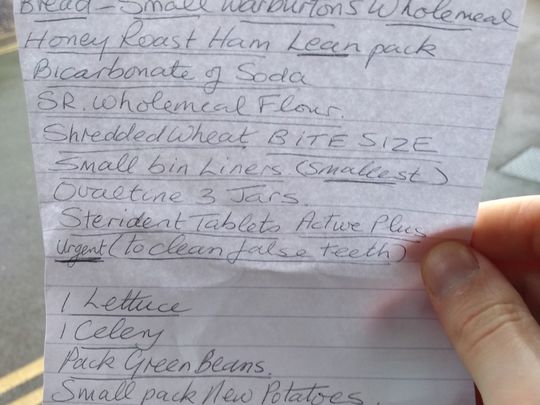 Bread - Small Warburtons Wholemeal
Honey Roast Ham Lean pack
Bicarbonate of Soda
SR. Wholemeal Flour.
Shredded Wheat BITE SIZE
Small bin Liners (Smallest)
Ovaltine 3 Jars.
Sterident Tablets Active Plus
Urgent (to clean false teeth)
1 Lettuce
1 Celery
Pack Green Beans.
Small pack New Potatoes.